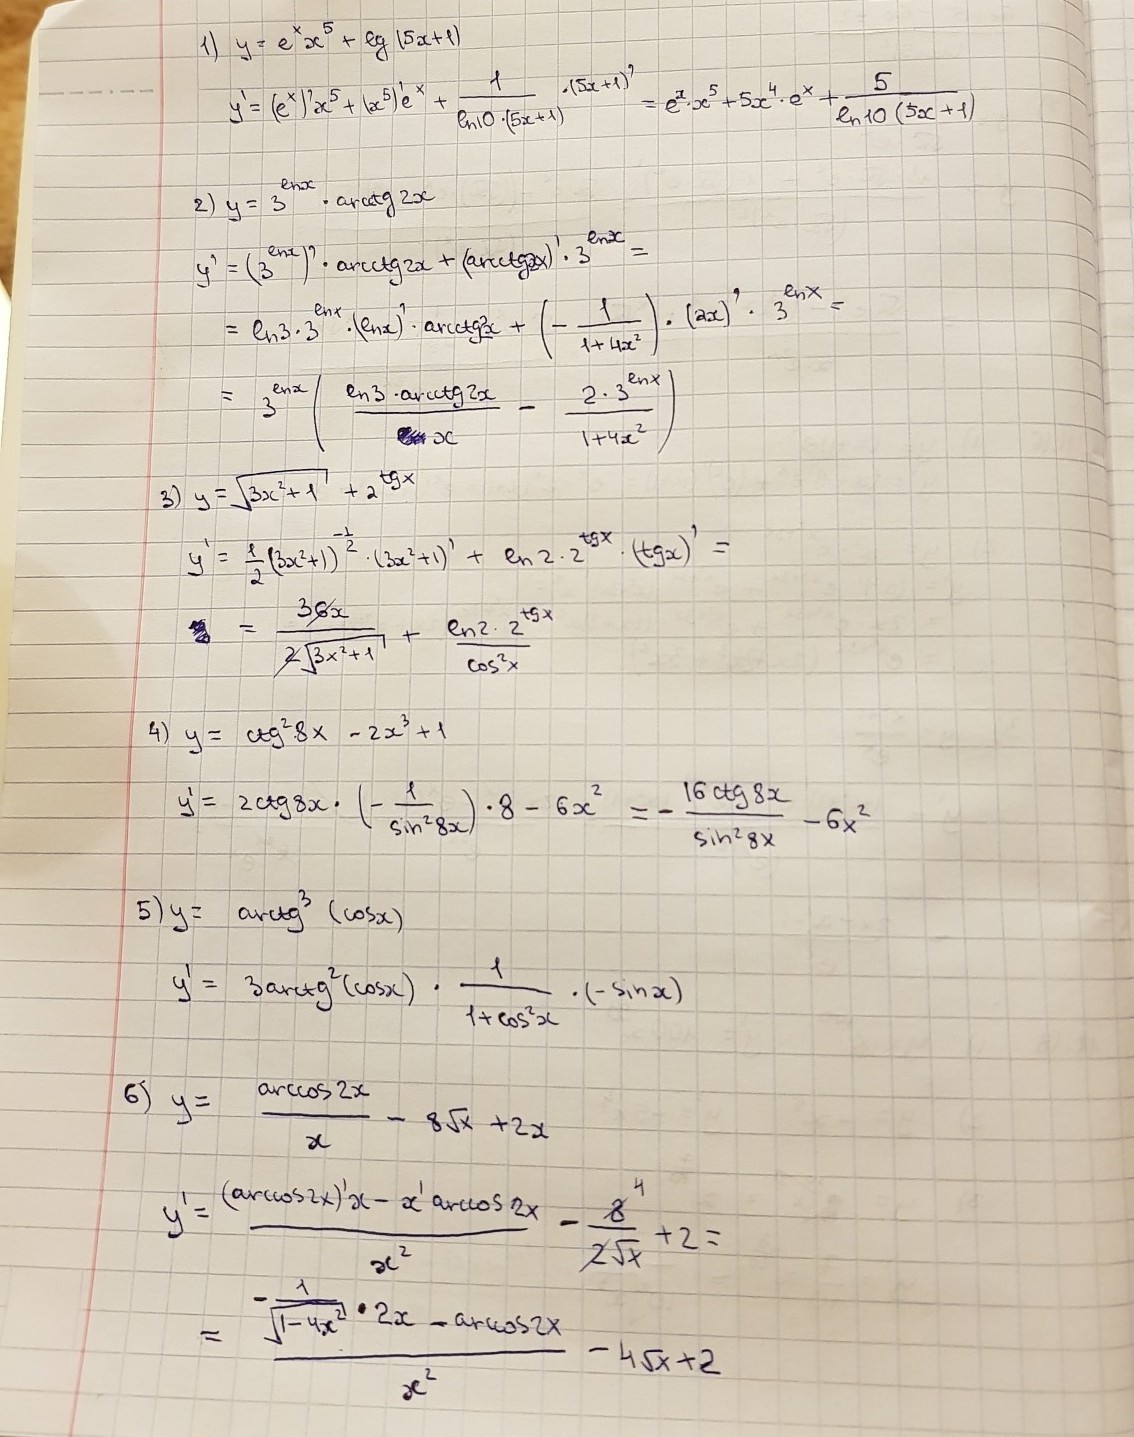 1) y = e^x x^5 + lg (5x+1)
y' = (e^x)' x^5 + (x^5)' e^x + 1/(ln10·(5x+1)) · (5x+1)' = e^x·x^5 + 5x^4·e^x + 5/(ln10 (5x+1))
2) y = 3^(lnx) · arcctg 2x
y' = (3^(lnx))' · arcctg 2x + (arcctg 2x)' · 3^(lnx) =
= ln3·3^(lnx) · (lnx)' · arcctg 2x + (- 1/(1+4x²)) · (2x)' · 3^(lnx) =
= 3^(lnx) ( (ln3 · arcctg 2x)/x - (2·3^(lnx))/(1+4x²) )
3) y = √(3x²+1) + 2^(tgx)
y' = 1/2 (3x²+1)^(-1/2) · (3x²+1)' + ln 2 · 2^(tgx) · (tgx)' =
= 3 6x/(2√(3x²+1)) + (ln2 · 2^(tgx))/cos²x
4) y = ctg² 8x - 2x³ + 1
y' = 2ctg8x · (- 1/sin²8x) · 8 - 6x² = - 16 ctg 8x/sin²8x - 6x²
5) y = arctg³ (cosx)
y' = 3arctg² (cosx) · 1/(1+cos²x) · (-sinx)
6) y = arccos 2x/x - 8√x + 2x
y' = ((arccos2x)' x - x' arccos 2x)/x² - 8 4/(2√x) + 2 =
= (- 1/√(1-4x²) · 2x - arccos2x)/x² - 4√x + 2